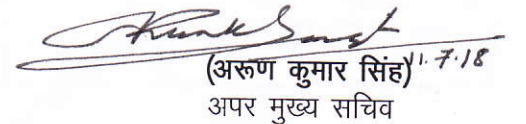 (अरूण कुमार सिंह) 11.7.18
अपर मुख्य सचिव